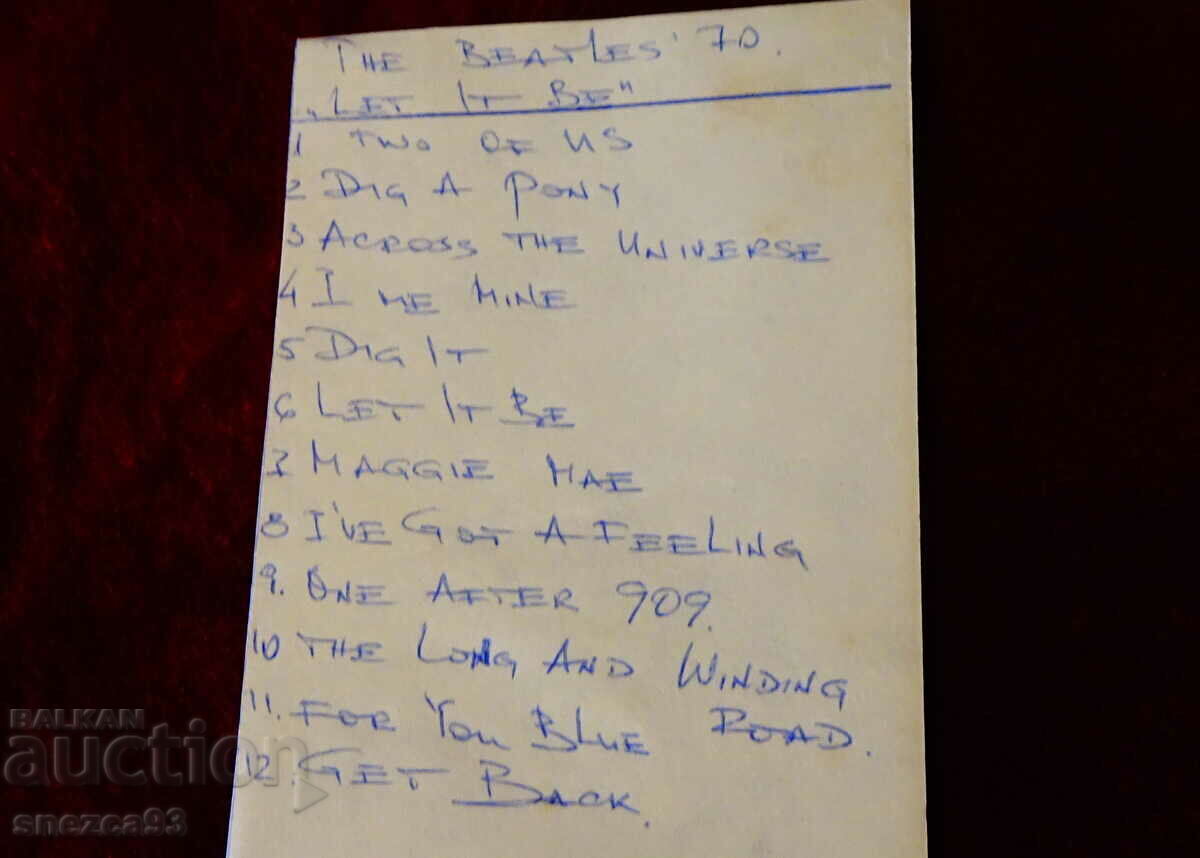 THE BEATLES '70.
„LET IT BE"
1 TWO OF US
2 DIG A PONY
3 ACROSS THE UNIVERSE
4 I ME MINE
5 DIG IT
6 LET IT BE
7 MAGGIE MAE
8 I'VE GOT A FEELING
9. ONE AFTER 909.
10 THE LONG AND WINDING
ROAD.
11. FOR YOU BLUE
12. GET BACK.
BALKAN
auction
snezca93